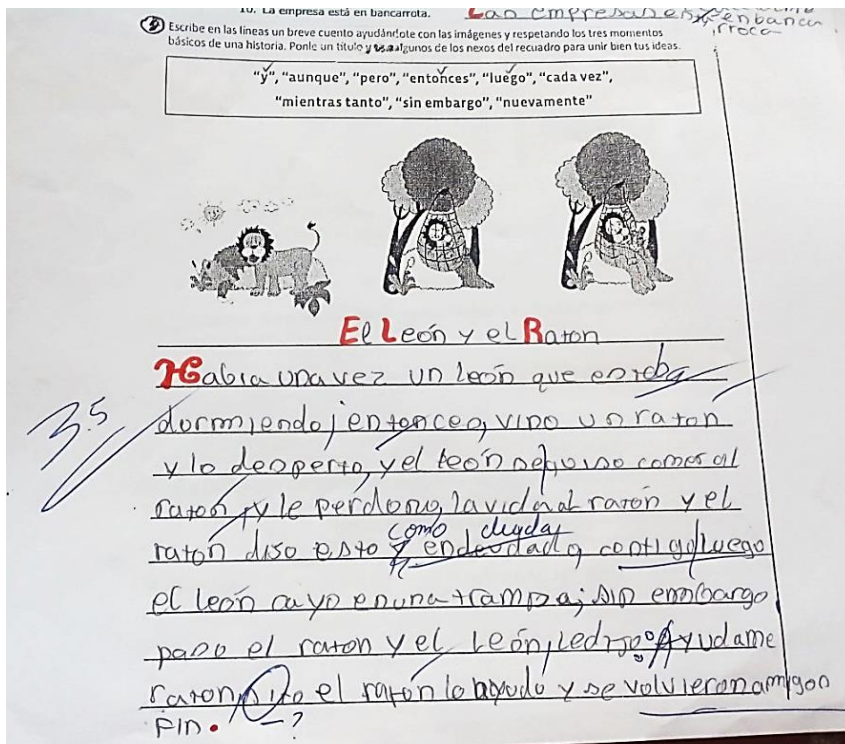 10. La empresa está en bancarrota. Las empresas están en banca
rroca
Escribe en las líneas un breve cuento ayudándote con las imágenes y respetando los tres momentos
básicos de una historia. Ponle un título y usa algunos de los nexos del recuadro para unir bien tus ideas.
"y", "aunque", "pero", "entonces", "luego", "cada vez",
"mientras tanto", "sin embargo", "nuevamente"
El León y el Raton
Habia una vez un león que estaba
dormiendo; entonces, vino un ratón
y lo desperto, y el león se quiso comer al
ratón, y le perdono la vida al ratón y el
como deuda
ratón diso esto y endeudado contigo luego
3.5
el león cayo en una trampa; sin embargo
paso el raton y el león, le dijo: Ayudame
raton, el ratón lo ayudo y se volvieron amigos
Fin. ?